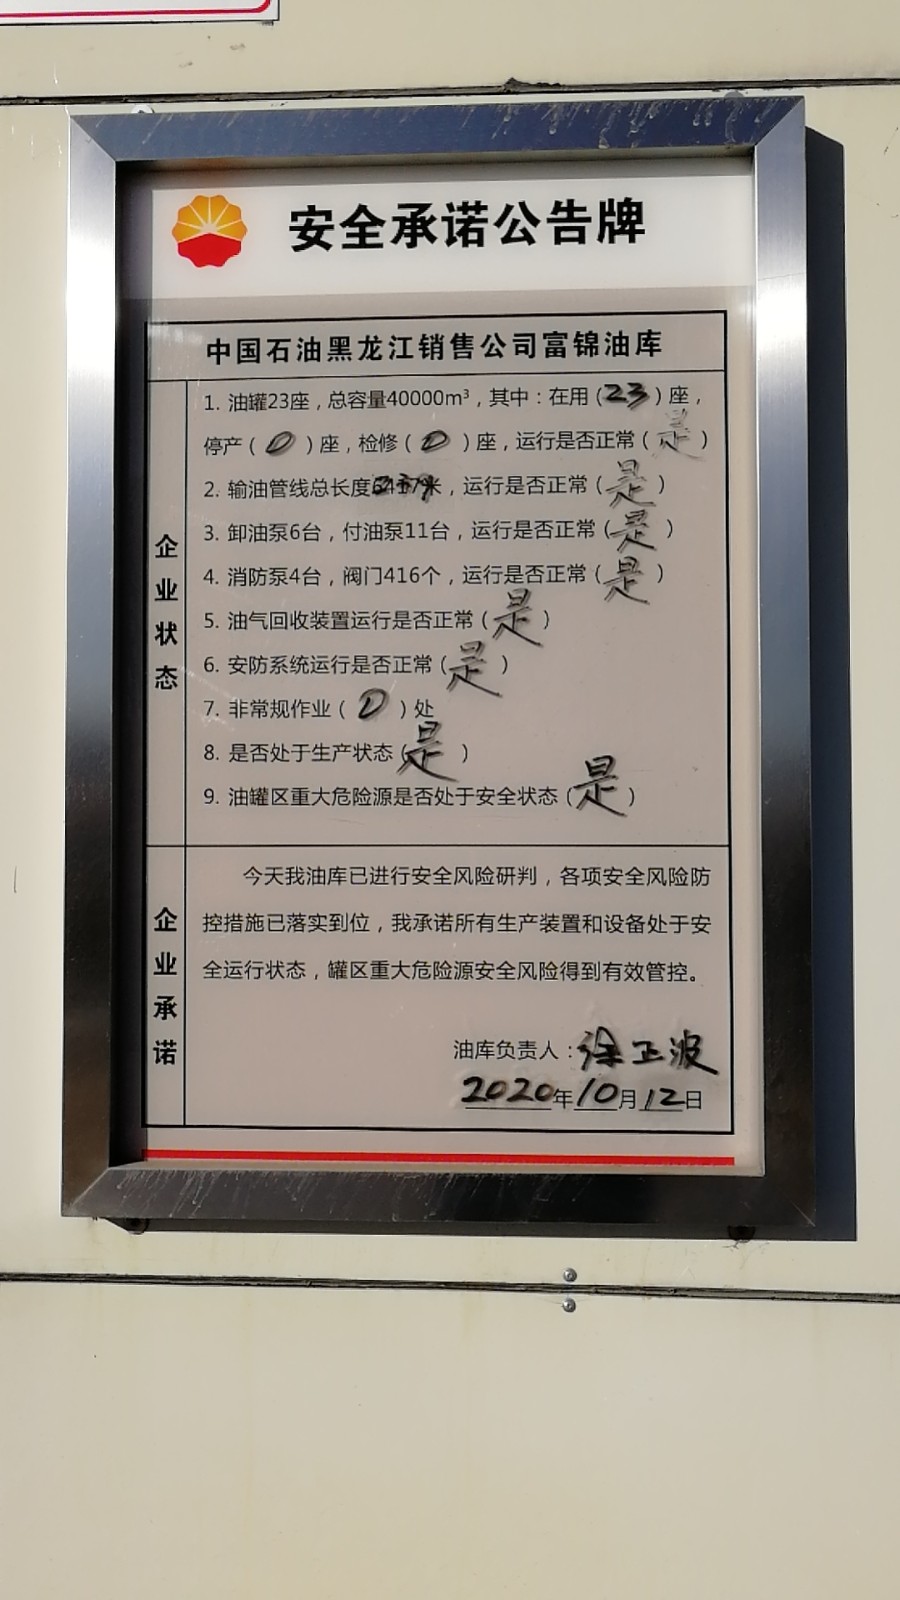 安全承诺公告牌
中国石油黑龙江销售公司富锦油库
企业状态
1. 油罐23座，总容量40000m³，其中：在用（23）座，
停产（0）座，检修（0）座，运行是否正常（是）
2. 输油管线总长度米，运行是否正常（是）
3. 卸油泵6台，付油泵11台，运行是否正常（是）
4. 消防泵4台，阀门416个，运行是否正常（是）
5. 油气回收装置运行是否正常（是）
6. 安防系统运行是否正常（是）
7. 非常规作业（0）处
8. 是否处于生产状态（是）
9. 油罐区重大危险源是否处于安全状态（是）
企业承诺
今天我油库已进行安全风险研判，各项安全风险防
控措施已落实到位，我承诺所有生产装置和设备处于安
全运行状态，罐区重大危险源安全风险得到有效管控。
油库负责人：徐正波
2020年10月12日